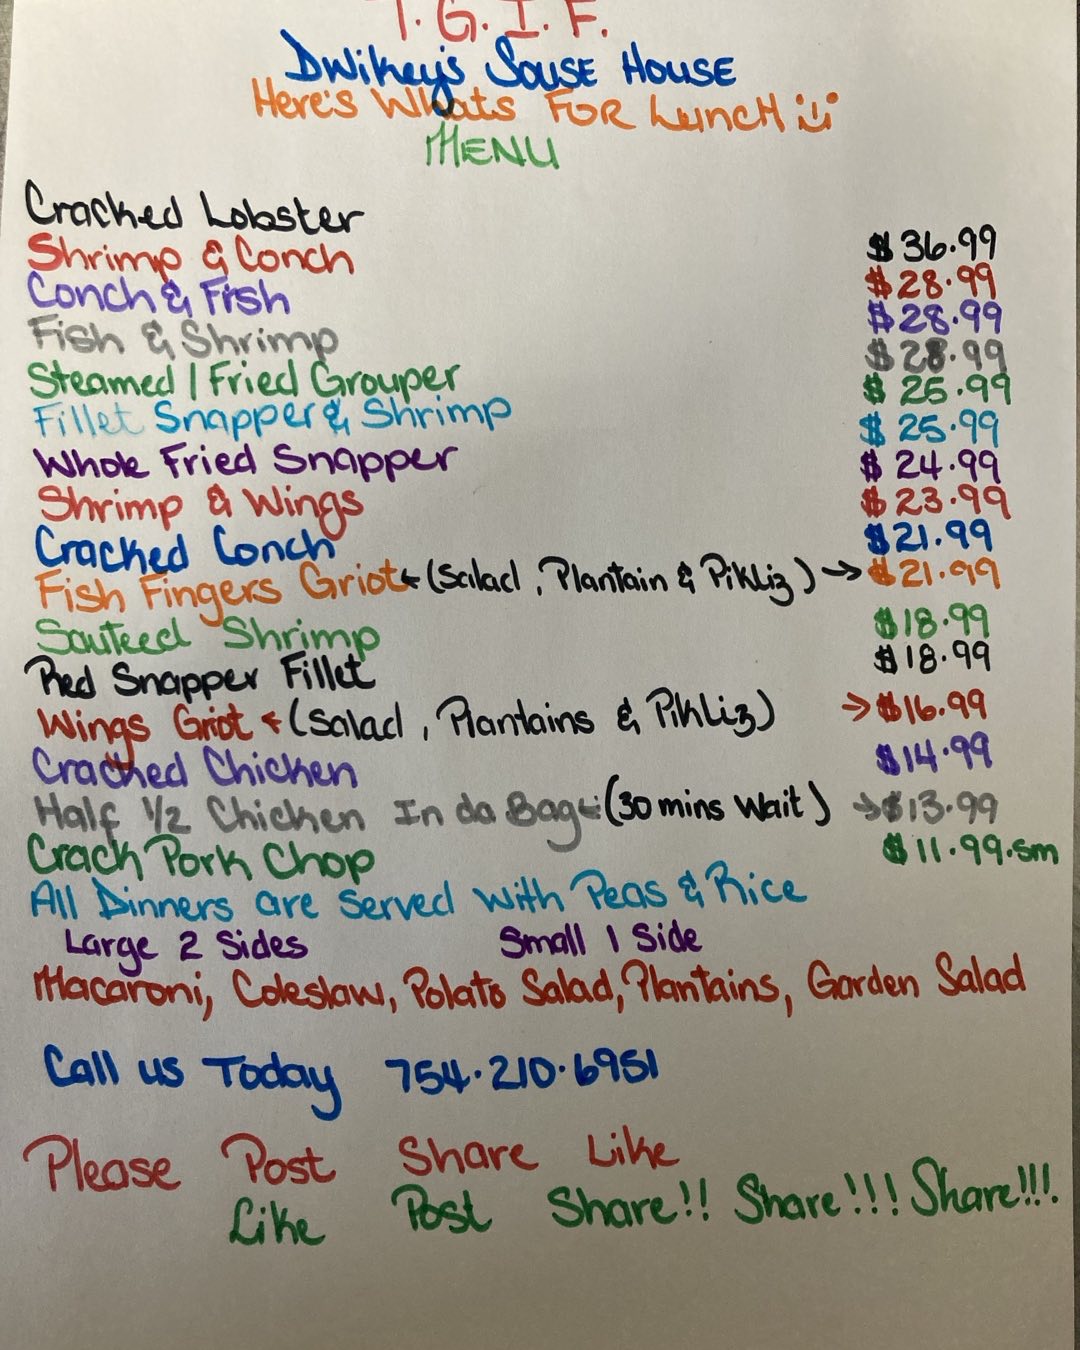 T. G. I. F.
Dwikey's Souse House
Here's Whats For Lunch
Menu
Cracked Lobster $36.99
Shrimp & Conch $28.99
Conch & Fish $28.99
Fish & Shrimp $28.99
Steamed / Fried Grouper $26.99
Fillet Snapper & Shrimp $25.99
Whole Fried Snapper $24.99
Shrimp & Wings $23.99
Cracked Conch $21.99
Fish Fingers Griot ← (Salad, Plantain & Pikliz) → $21.99
Sauteed Shrimp $18.99
Red Snapper Fillet $18.99
Wings Griot ← (Salad, Plantains & Pikliz) → $16.99
Cracked Chicken $14.99
Half 1/2 Chicken In da Bag ← (30 mins Wait) → $13.99
Crack Pork Chop $11.99.sm
All Dinners are Served With Peas & Rice
Large 2 Sides Small 1 Side
Macaroni, Coleslaw, Potato Salad, Plantains, Garden Salad
Call us Today 754.210.6951
Please Post Share Like
Like Post Share!! Share!!! Share!!!.